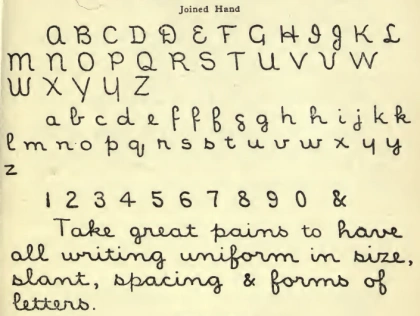 Joined Hand
A B C D D E F G H I J K L
M N O P Q R S T U V V W
W X Y Y Z
a b c d e f f f g g h h i j k k
l m n o p q r s s t u v v w x y y
z
1 2 3 4 5 6 7 8 9 0 &
Take great pains to have
all writing uniform in size,
slant, spacing & forms of
letters.